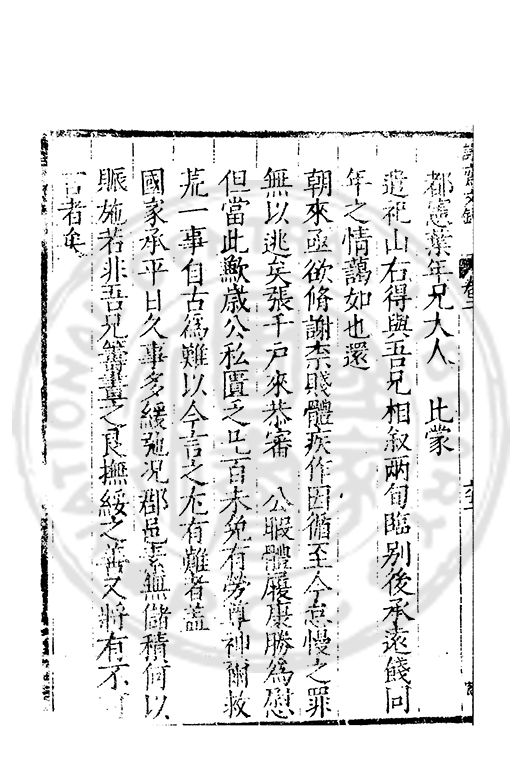 都憲葉年兄大人 比蒙
遣祀山右得與吾兄相敘兩旬臨别後承遠餞同
年之情藹如也還
朝來亟欲脩謝柰賤體疾作因循至今怠慢之罪
無以逃矣張千戸來恭審 公暇體履康勝為慰
但當此歉歳公私匱乏凡百未免有勞尊神爾救
荒一事自古為難以今言之尤有難者盖
國家承平日久事多緩弛况郡邑素無儲積何以
賑施若非吾兄籌畫之良撫綏之善又將有不可
言者矣